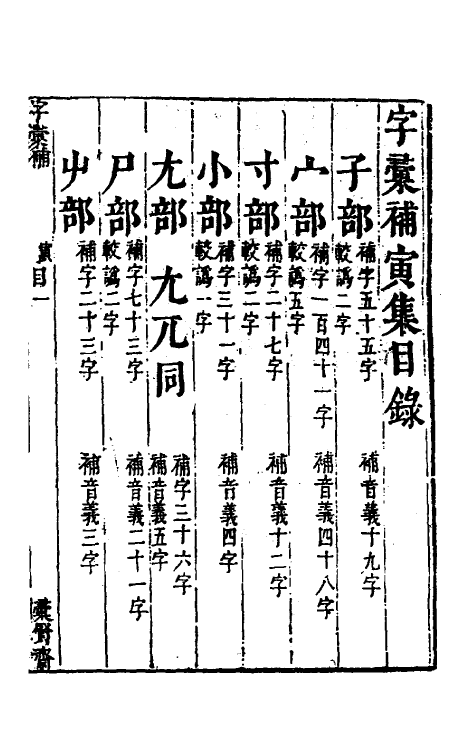 字彙補寅集目錄
子部 補字五十五字 補音義十九字
較譌二字
宀部 補字一百四十一字 補音義四十八字
較譌五字
寸部 補字二十七字 補音義十二字
較譌二字
小部 補字三十一字 補音義四字
較譌一字
尢部 尣兀同 補字三十六字
補音義五字
尸部 補字七十三字 補音義二十一字
較譌二字
屮部 補字二十三字 補音義三字
字彙補
寅目一
彙賢齋